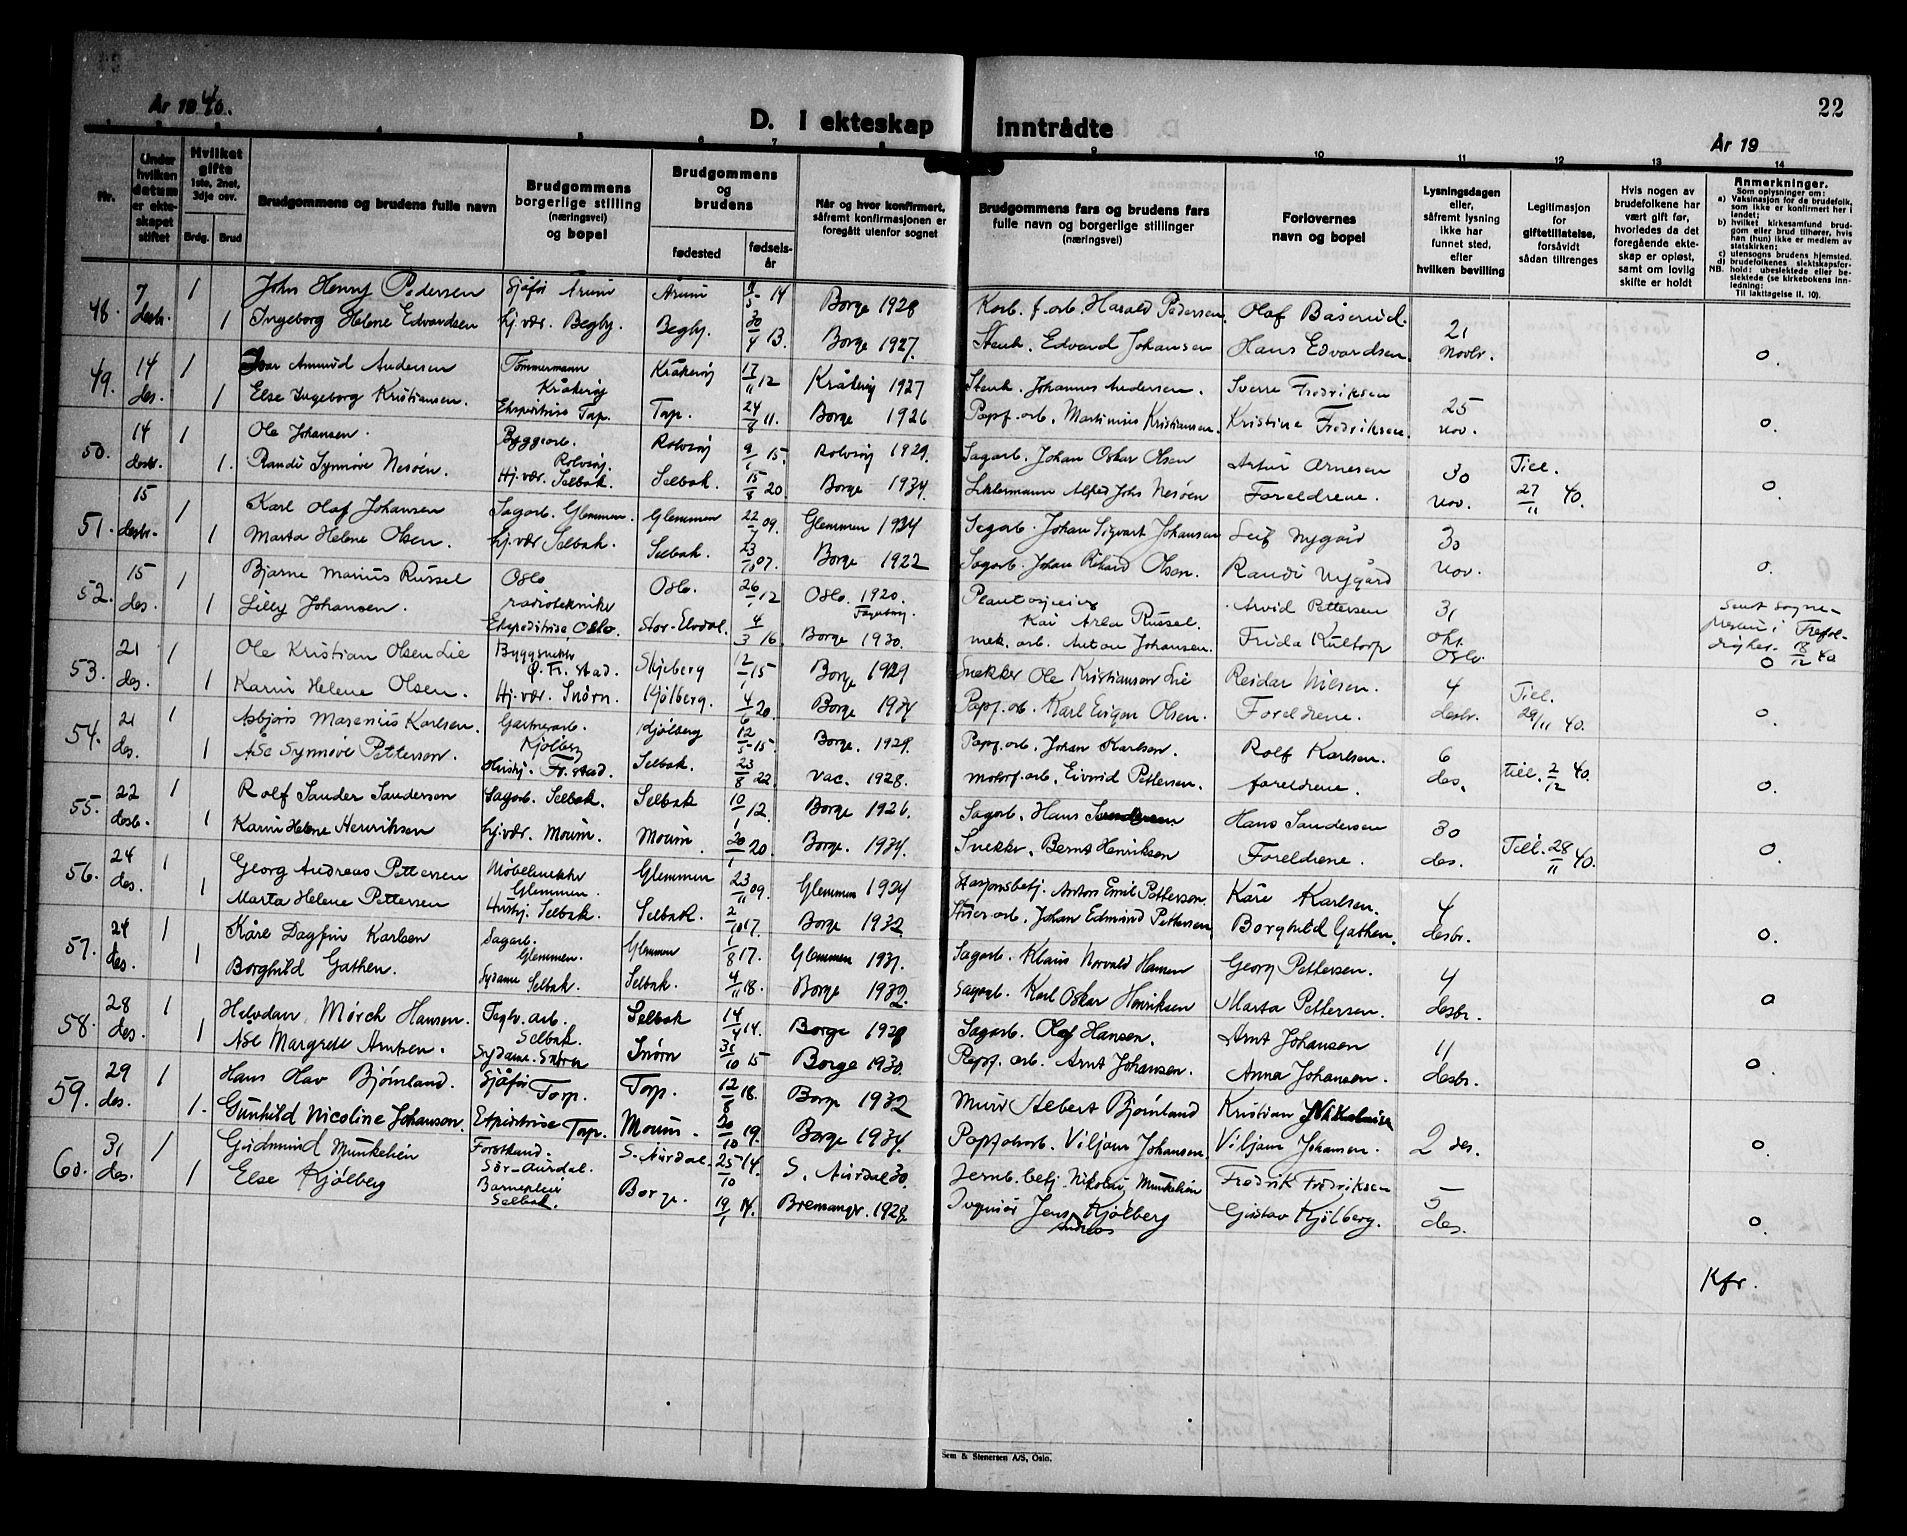 År 1940.
D. I ekteskap inntrådte
22
År 19
4 5 6 7 8 9 10 11 12 13 14
Nr.
Under hvilken datum er ekteskapet stiftet
Hvilket gifte 1ste, 2net, 3dje osv.
Brdg. Brud
Brudgommens og brudens fulle navn
Brudgommens borgerlige stilling (næringsvei) og bopel
Brudgommens og brudens
fødested
fødselsår
Når og hvor konfirmert, såfremt konfirmasjonen er foregått utenfor sognet
Brudgommens fars og brudens fars fulle navn og borgerlige stillinger (næringsvei)
Forlovernes navn og bopel
Lysningsdagen eller, såfremt lysning ikke har funnet sted, efter hvilken bevilling
Legitimasjon for giftetillatelse, forsåvidt sådan tiltrenges
Hvis nogen av brudefolkene har vært gift før, hvorledes da det foregående ekteskap er opløst, samt om lovlig skifte er holdt
Anmerkninger.
Som oplysninger om:
a) Vaksinasjon for de brudefolk, som ikke er konfirmert her i landet;
b) hvilket kirkesamfund brudgom eller brud tilhører, hvis han (hun) ikke er medlem av statskirken;
c) utensogns brudens hjemsted.
d) brudefolkenes slektskapsforhold: ubeslektede eller beslektede (se kirkebokens innledning:
NB. Til Iakttagelse II. 10).
48. 7 desbr. 1 John Henry Pedersen Sjåfør Årum Årum 5 14 Borge 1928 Korb. f. arb. Harald Pedersen. Olaf Båserud. 21 Novbr.
1 Ingeborg Helene Edvardsen Hj. vær. Begby. Begby. 30/4 13. Borge 1927. Stenh. Edvard Johansen Hans Edvardsen. 0.
49. 14 des. 1 Ivar Amund Andersen Tømmermann Kråkerøy Kråkerøy 17/11 12 Kråkerøy 1927 Stenh. Johannes Andersen. Sverre Fredriksen 25 nov.
1 Else Ingeborg Kristiansen. Ekspeditrise Torp. Torp. 24/8 11. Borge 1926 Papf. arb. Martinius Kristiansen. Kristine Fredriksen. 0.
50. 14 desbr. 1 Ole Johansen. Byggearb. Rolvsøy. Rolvsøy 9/1 15. Rolvsøy 1929. Sagarb. Johan Oskar Olsen Artur Arnesen 30 nov. Till. 27/11 40.
1. Randi Synnøve Nesøen. Hj. vær. Selbak. Selbak. 15/8 20. Borge 1934. Alfred Johs Nesøen Foreldrene. 0.
51. 15 desbr. 1 Karl Olaf Johansen Sagarb. Glemmen. Glemmen 22/7 09. Glemmen 1924 Sagarb. Johan Sigvart Johansen Leif Nygård 30 nov.
1 Marta Helene Olsen. Hj. vær Selbak. Selbak. 23/10 07. Borge 1922 Sagarb. Johan Rikard Olsen. Randi Nygård 0.
52. 15 des. 1 Bjarne Marius Russel Oslo radiotekniker Oslo. 26/1 12 Oslo. 1920. Fagerborg. Kai Arla Russel. Arvid Pettersen 31 okt. Oslo. Sendt sogneprest i Trefoldighet. 18/12 40
1 Lilly Johansen. Ekspeditrise, Oslo. Stor-Elvdal. 4/3 16. Borge 1930. mek. arb. Anton Johansen. Frida Kultorp 0
53. 21 des. 1 Ole Kristian Olsen Lie Byggsnekker Ø. Fr. stad. Skjeberg 12/1 15 Borge 1929 Snekker Ole Kristianson Lie Reidar Nilsen. 4 desbr. Till. 29/11 40.
1 Karin Helene Olsen. Hj. vær. Torp. Kjølberg. 4/6 20. Borge 1934 Papf. arb. Karl Olsen. Foreldrene. 0.
54. 21 des. 1 Asbjørn Marenius Karlsen. Gartnerarb. Kjølberg Kjølberg 12/5 15. Borge. 1929. Papf. arb. Johan Karlsen. Rolf Karlsen. 6 des. Till. 2/12 40.
1 Åse Synnøve Pettersen. Hushj. Fr. stad. Selbak. 23/8 22. vac. 1928. Eivind Pettersen. foreldrene. 0.
55. 22 desb. 1 Rolf Sander Sandersen Sagarb. Selbak. Selbak 10/1 12. Borge 1926. Sagarb. Hans Sandersen Hans Sandersen 30 des. Till. 28/11 40.
1 Karin Helene Henriksen Hj. vær. Moum. Moum. 20/1 20. Borge. 1934. Snekker. Bernt Henriksen Foreldrene. 0.
56. 24 des. 1 Georg Andreas Pettersen Møbelsnekker Glemmen. Glemmen 23/11 09. Glemmen 1924 Stasjonsbetj. Anton Emil Pettersen. Kåre Karlsen. 4 desbr.
1 Marta Helene Pettersen Hushj. Selbak. Selbak. 2/10 17. Borge 1932. Johan Edmund Pettersen. Borghild Gathen. 0.
57. 24 des. 1 Kåre Dagfin Karlsen Sagarb. Glemmen. Glemmen 1/8 17. Glemmen 1931. Sagarb. Klaus Norvald Hansen Georg Pettersen. 4 desbr.
1 Borghild Gathen. Sydame Selbak. Selbak. 4/11 18. Borge 1932. Sagarb. Karl Oskar Henriksen Marta Pettersen. 0
58. 28 des. 1 Halvdan Mørch Hansen. Teglv. arb. Selbak. Selbak 14/4 14. Borge 1928 Sagarb. Olaf Hansen. Arnt Johansen 11 desbr.
1 Åse Margrete Arntsen. Sydame. Torp. 31/10 15 Borge 1930. Papf. arb. Arnt Johansen. Anna Johansen. 0.
59. 29 des. 1 Hans Olav Bjørnland. Sjåfør Torp. Torp. 12/8 18. Borge 1932 Murer Albert Bjørnland Kristian 2 des.
1. Gunhild Nicoline Johansen. Ekspeditrise Torp. Moum. 20/10 19. Borge 1934. Papf. arb. Viljam Johansen. Viljam Johansen. 0.
60. 31 des. 1 Gudmund Munkelien Forstkand. Sør-Aurdal. S. Aurdal. 25/10 14. S. Aurdal 30. Jernb. betj. Nikolai Munkelien Fredrik Fredriksen 5 des.
1 Else Kjølberg Barnepleie Selbak. Borge. 19/1 14. Bremanger. 1928 Ingeniør Jens Andreas Kjølberg Gustav Kjølberg. 0.
Kfr.
Sem & Stenersen A/S, Oslo.